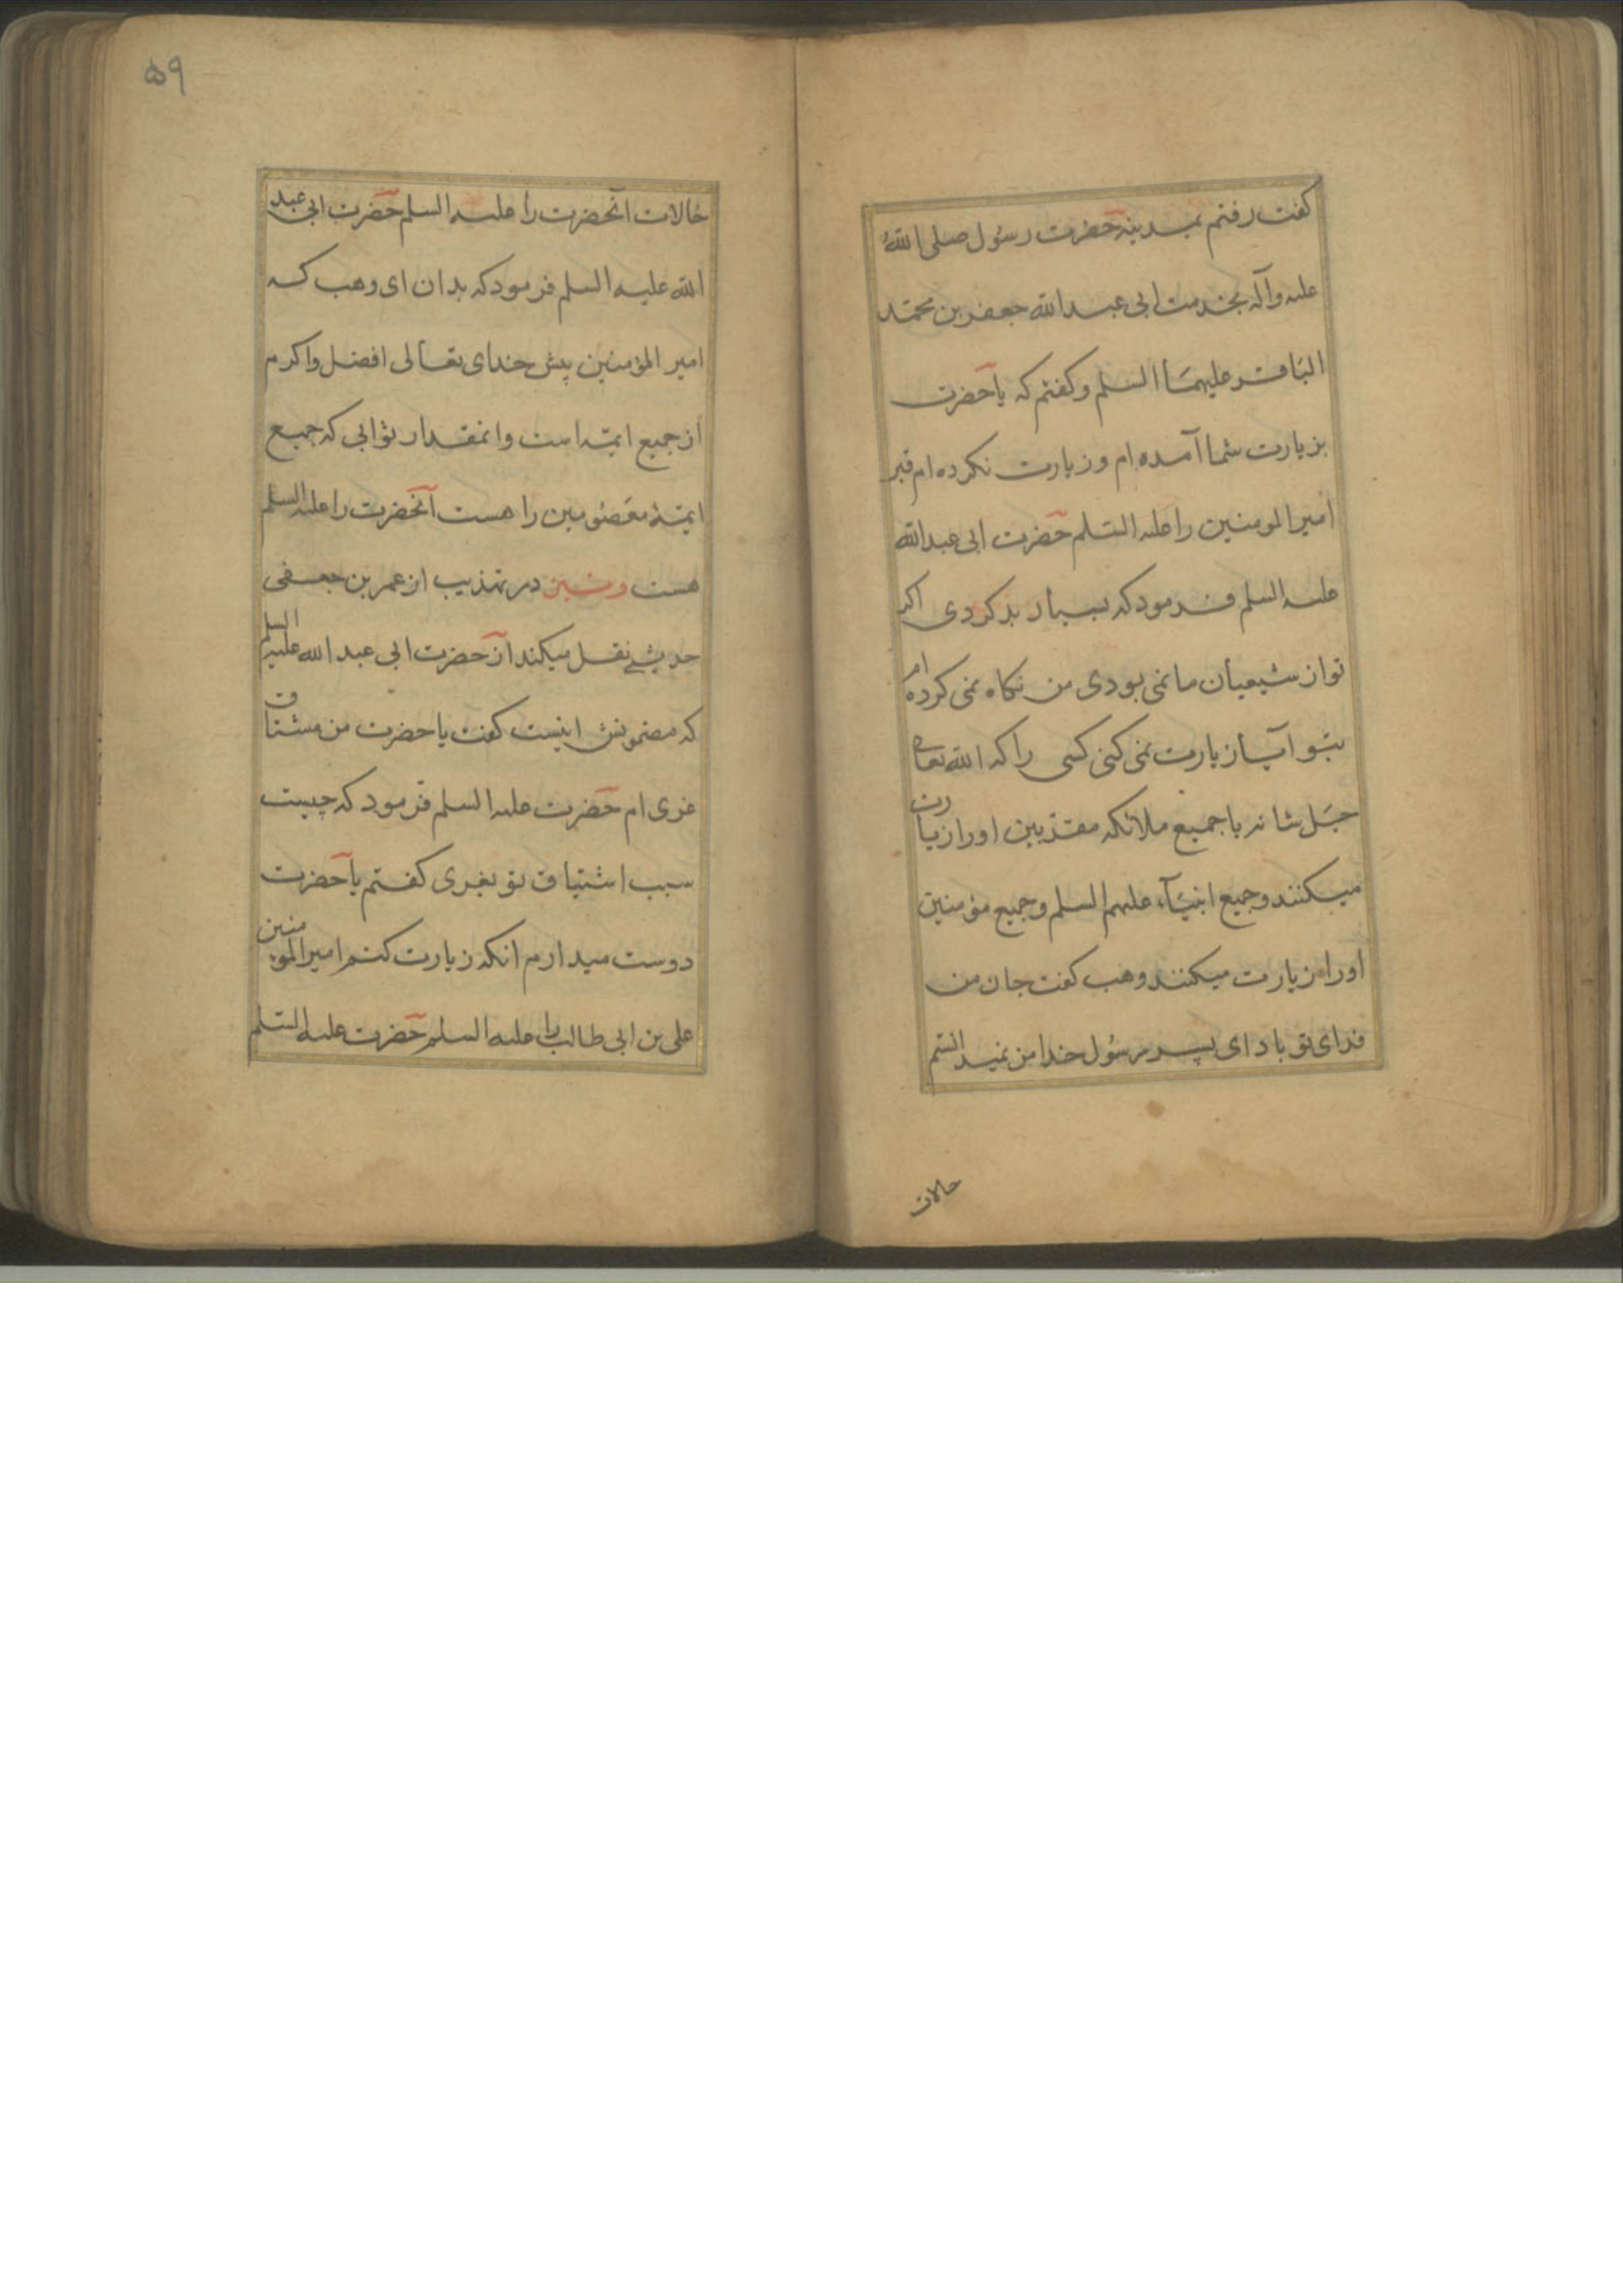 کفت رفتم بمدینه حضرت رسول صلی الله
علیه وآله بخدمت ابی عبدالله جعفر بن محمد
الباقر علیهما السلم وکفتم که یا حضرت
بزیارت شما آمده ام وزیارت نکرده ام قبر
امیر المومنین را علیه السلم حضرت ابی عبدالله
علیه السلم فرمود که بسیار بد کردی اکر
تو از شیعیان ما نمی بودی من نکاه نمی کرده ام
بتو آیا زیارت نمی کنی کسی را که الله تعالی
جل شانه با جمیع ملائکه مقربین او را زیارت
میکنند وجمیع انبیآء علیهم السلم وجمیع مؤمنین
او را زیارت میکنند وهب کفت جان من
فدای تو باد ای پسر رسول خدا من نمیدانستم
حالات
۵۹
حالات آنحضرت را علیه السلم حضرت ابی عبد
الله علیه السلم فرمود که بدان ای وهب که
امیر المؤمنین پیش خدای تعالی افضل واکرم
از جمیع ایمه است وانمقدار ثوابی که جمیع
ایمهٔ معصومین را هست آنحضرت را علیه السلم
هست ونیز در تهذیب از عمر بن جعفی
حدیثی نقل میکند از حضرت ابی عبد الله علیه السلم
که مضمونش اینست کفت یا حضرت من مشتاق
غری ام حضرت علیه السلم فرمود که چیست
سبب اشتیاق تو بغری کفتم یا حضرت
دوست میدارم انکه زیارت کنم امیر المومنین
علی بن ابی طالب را علیه السلم حضرت علیه السلم